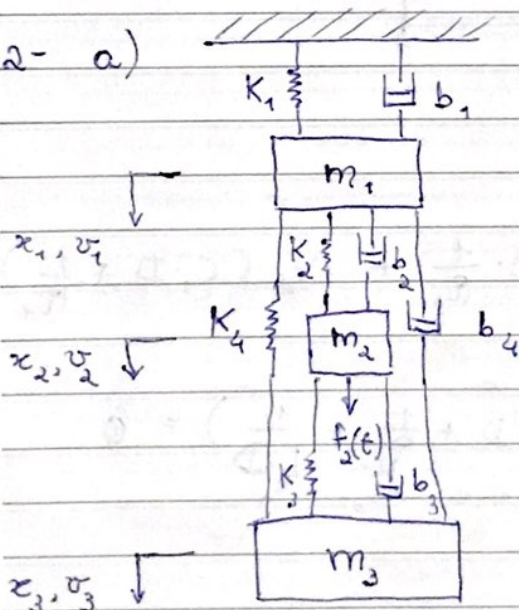 2- a)
K1 b1
m1
x1, v1
K2 b2
K4 b4
m2
x2, v2
f2(t)
K3 b3
m3
x3, v3